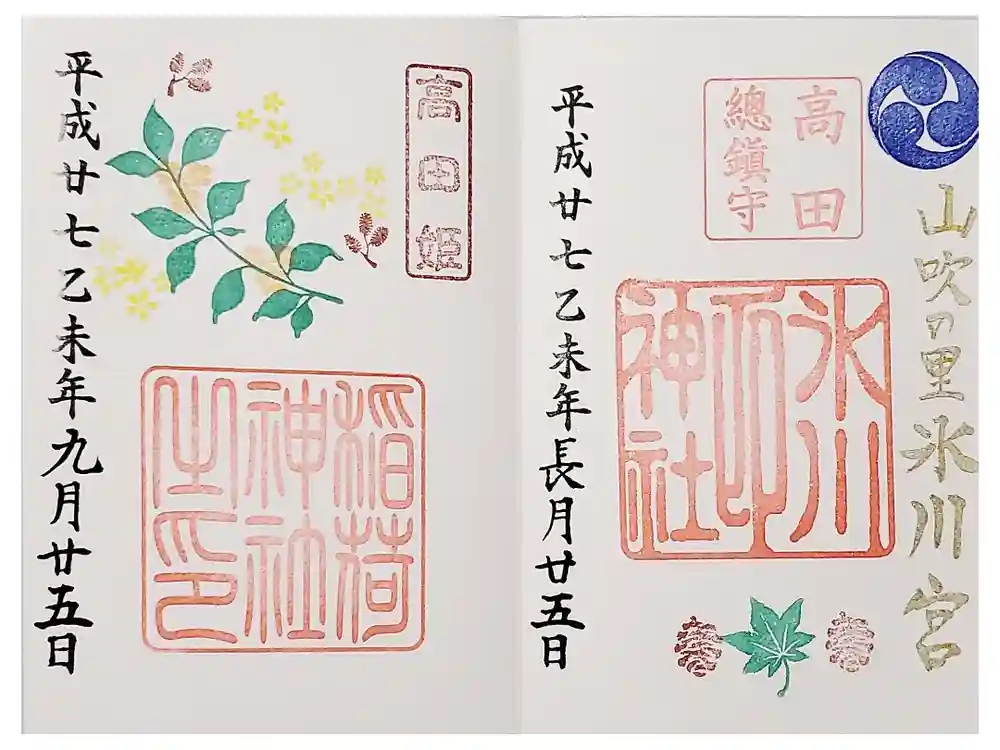 山吹の里氷川宮
高田
總鎭守
氷川
神社
平成廿七乙未年長月廿五日
高田姫
稲荷
神社
之印
平成廿七乙未年九月廿五日